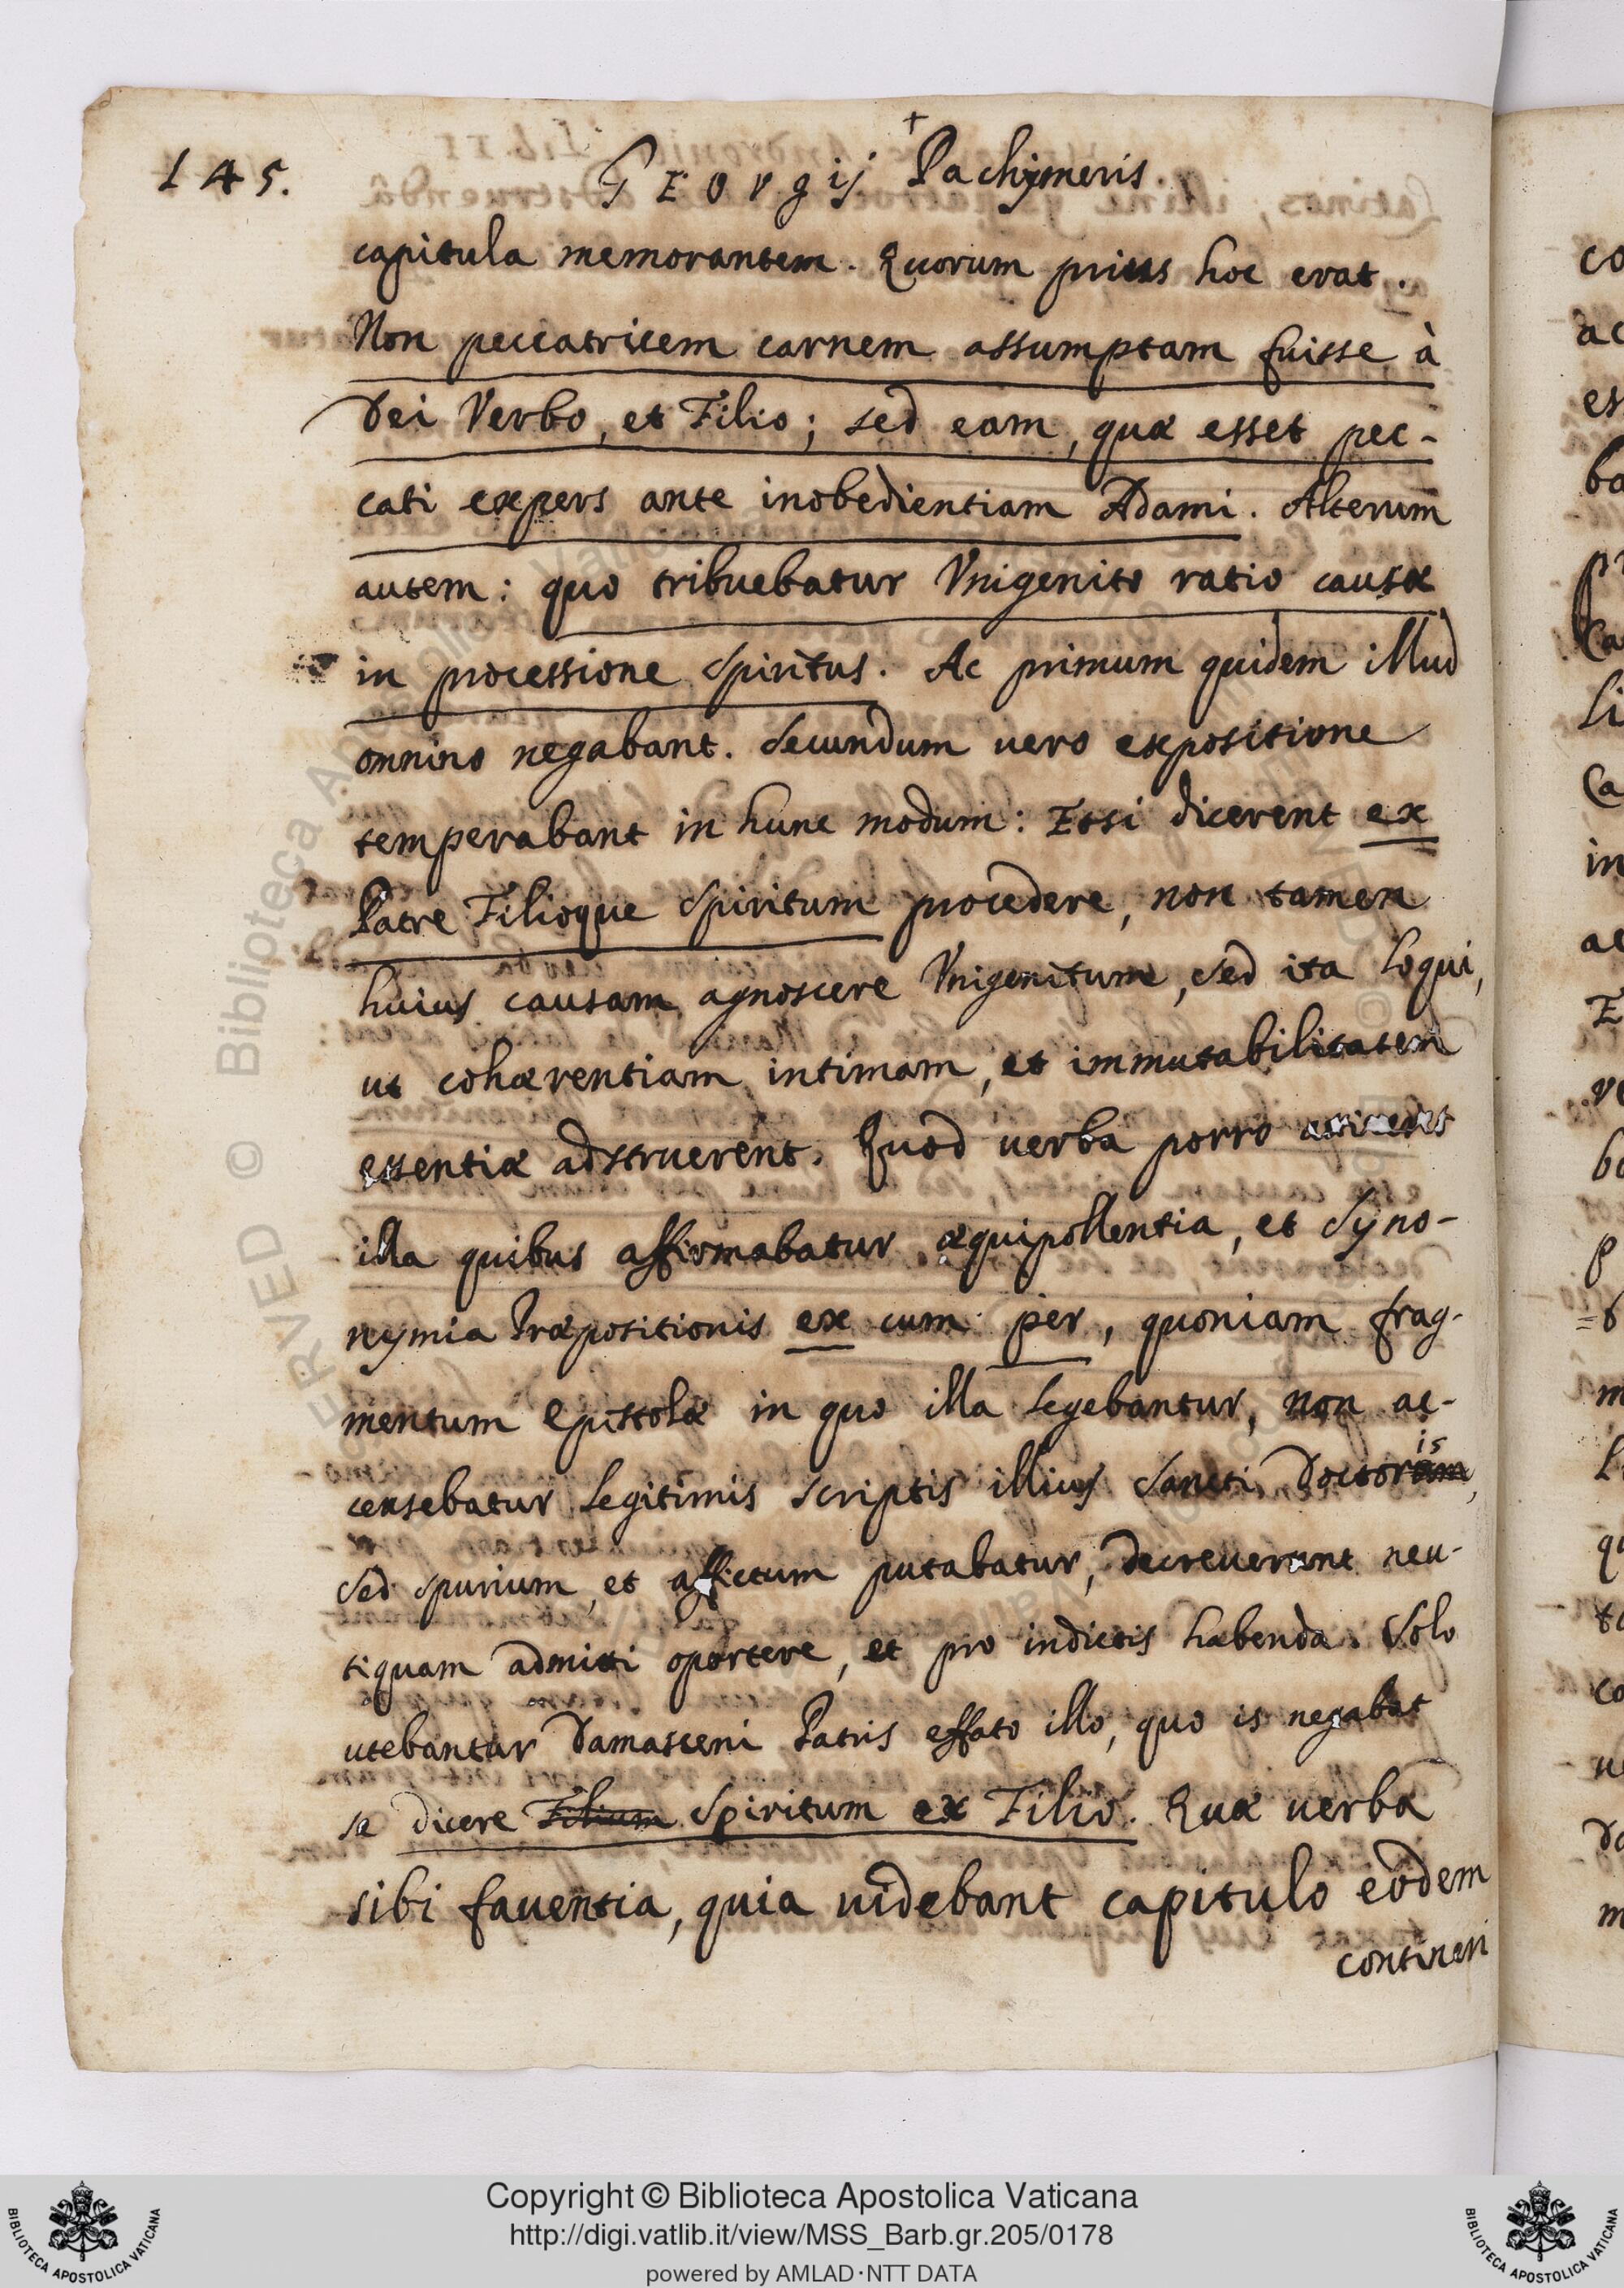 145.
Georgij Pachymeris.
capitula memorantem. Quorum prius hoc erat.
Non peccatricem carnem assumptam fuisse à
Dei Verbo, et Filio; sed eam, quæ esset pec-
cati expers ante inobedientiam Adami. Alterum
autem: quo tribuebatur Vnigenito ratio causæ
in processione Spiritus. Ac primum quidem illud
omnino negabant. Secundum uero expositione
temperabant in hunc modum: Etsi dicerent ex
Patre Filioque Spiritum procedere, non tamen
huius causam agnoscere Vnigenitum, sed ita loqui,
ut cohærentiam intimam, et immutabilitatem
essentiæ adstruerent. Quod uerba porro
illa quibus affirmabatur æquipollentia, et Syno-
nymia Præpositionis ex cum per, quoniam frag-
mentum epistolæ in quo illa legebantur, non ac-
censebatur legitimis scriptis illius Sancti Doctoris,
sed spurium, et affictum putabatur, decreuerunt neu-
tiquam admitti oportere, et pro indictis habenda. Solo
utebantur Damasceni Patris effato illo, quo is negabat
se dicere Filium Spiritum ex Filio. Quæ uerba
sibi fauentia, quia uidebant capitulo eodem
contineri
Copyright © Biblioteca Apostolica Vaticana
http://digi.vatlib.it/view/MSS_Barb.gr.205/0178
powered by AMLAD·NTT DATA
BIBLIOTECA APOSTOLICA VATICANA
BIBLIOTECA APOSTOLICA VATICANA